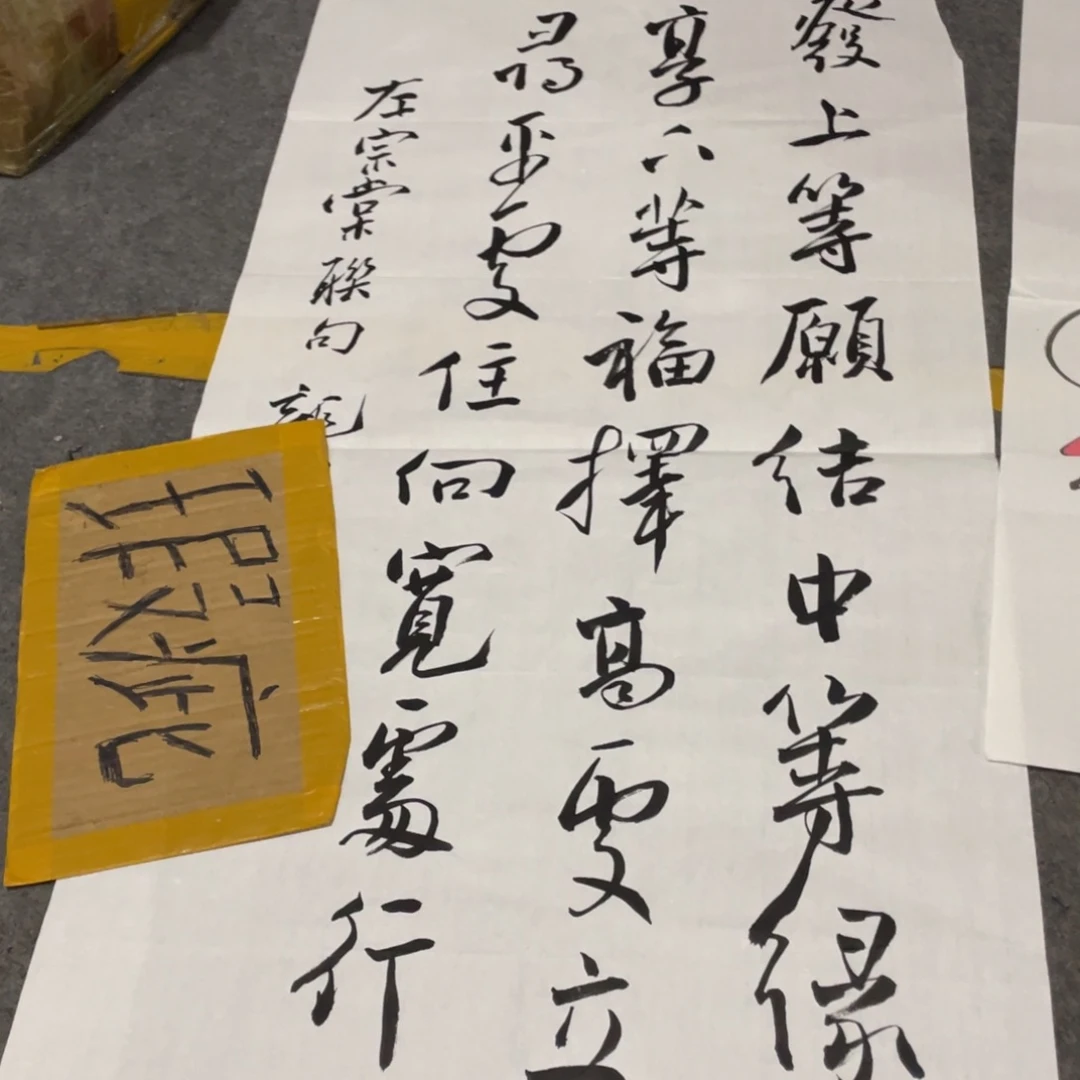 發上等願結中等緣
享下等福擇高處立
尋平處住向寬處行
左宗棠聯句